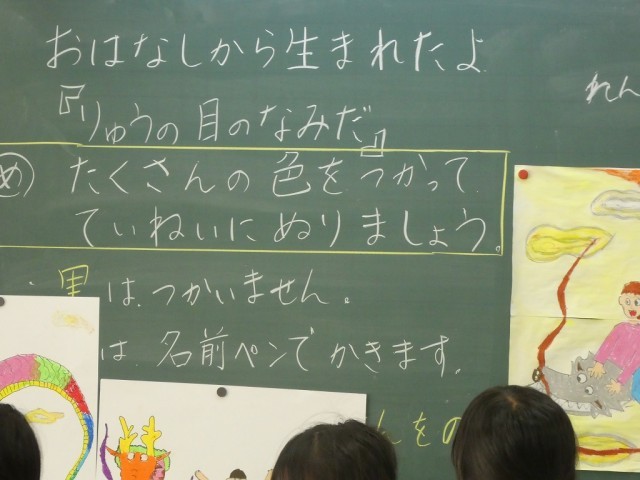 おはなしから生まれたよ
『りゅうの目のなみだ』
れん
め たくさんの色をつかって
ていねいにぬりましょう。
・黒は、つかいません。
は、名前ペンでかきます。
んをの